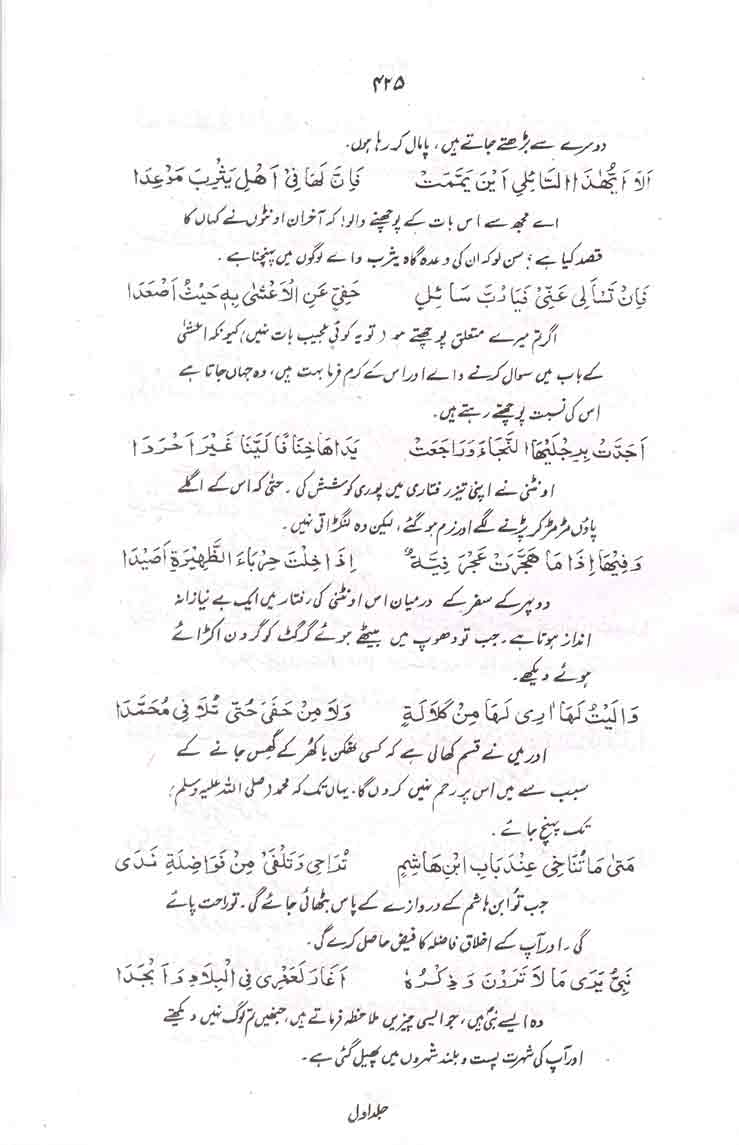 ۴۲۵
دوسرے سے بڑھتے جاتے ہیں، پامال کر رہا ہوں۔
اَلَا اَيُّهٰذَا السَّائِلِي اَيْنَ يَمَّمَتْ فَاِنَّ لَهَا فِيْ اَهْلِ يَثْرِبَ مَوْعِدَا
اے مجھ سے اس بات کے پوچھنے والو! کہ آخر ان اونٹوں نے کہاں کا
قصد کیا ہے؛ سن لو کہ ان کی وعدہ گاہ یثرب والے لوگوں میں پہنچنا ہے۔
فَاِنْ تَسْاَلِيْ عَنِّيْ فَيَا رُبَّ سَائِلٍ حَفِيٍّ عَنِ الْاَعْشٰى بِهٖ حَيْثُ اَصْعَدَا
اگر تم میرے متعلق پوچھتے ہو، تو یہ کوئی عجیب بات نہیں؛ کیونکہ اعشیٰ
کے باب میں سوال کرنے والے اور اس کے کرم فرما بہت ہیں، وہ جہاں جاتا ہے
اس کی نسبت پوچھتے رہتے ہیں۔
اَجَدَّتْ بِرِجْلَيْهَا النَّجَاءَ وَرَاجَعَتْ يَدَاهَا خِنَافًا لَيِّنًا غَيْرَ اَحْرَدَا
اونٹنی نے اپنی تیز رفتاری میں پوری کوشش کی۔ حتیٰ کہ اس کے اگلے
پاؤں مڑ مڑ کر پڑنے لگے اور نرم ہو گئے، لیکن وہ لنگڑاتی نہیں۔
وَفِيْهَا اِذَا مَا هَجَّرَتْ عَجْرَفِيَّةٌ اِذَا خِلْتَ حِرْبَاءَ الظَّهِيْرَةِ اَصْيَدَا
دوپہر کے سفر کے درمیان اس اونٹنی کی رفتار میں ایک بے نیازانہ
انداز ہوتا ہے۔ جب تو دھوپ میں بیٹھے ہوئے گرگٹ کو گردن اکڑائے
ہوئے دیکھے۔
وَاٰلَيْتُ لَهَا اَرِى لَهَا مِنْ كَلَالَةٍ وَلَا مِنْ حَفَى حَتّٰى تُلَاقِيْ مُحَمَّدَا
اور میں نے قسم کھالی ہے کہ کسی تھکن یا کھر کے گھس جانے کے
سبب سے میں اس پر رحم نہیں کروں گا۔ یہاں تک کہ محمد (صلی اللہ علیہ وسلم)
تک پہنچ جائے۔
مَتٰى مَا تُنَاخِيْ عِنْدَ بَابِ ابْنِ هَاشِمٍ تُرَاحِيْ وَتَلْقَىْ مِنْ فَوَاضِلِهٖ نَدَى
جب تُو ابن ہاشم کے دروازے کے پاس بٹھائی جائے گی۔ تو راحت پائے
گی۔ اور آپ کے اخلاق فاضلہ کا فیض حاصل کرے گی۔
نَبِيٌّ يَرَى مَا لَا تَرَوْنَ وَذِكْرُهٗ اَغَارَ لَعَمْرِيْ فِي الْبِلَادِ وَاَنْجَدَا
وہ ایسے نبی ہیں، جو ایسی چیزیں ملاحظہ فرماتے ہیں، جنھیں تم لوگ نہیں دیکھتے
اور آپ کی شہرت پست و بلند شہروں میں پھیل گئی ہے۔
جلد اول